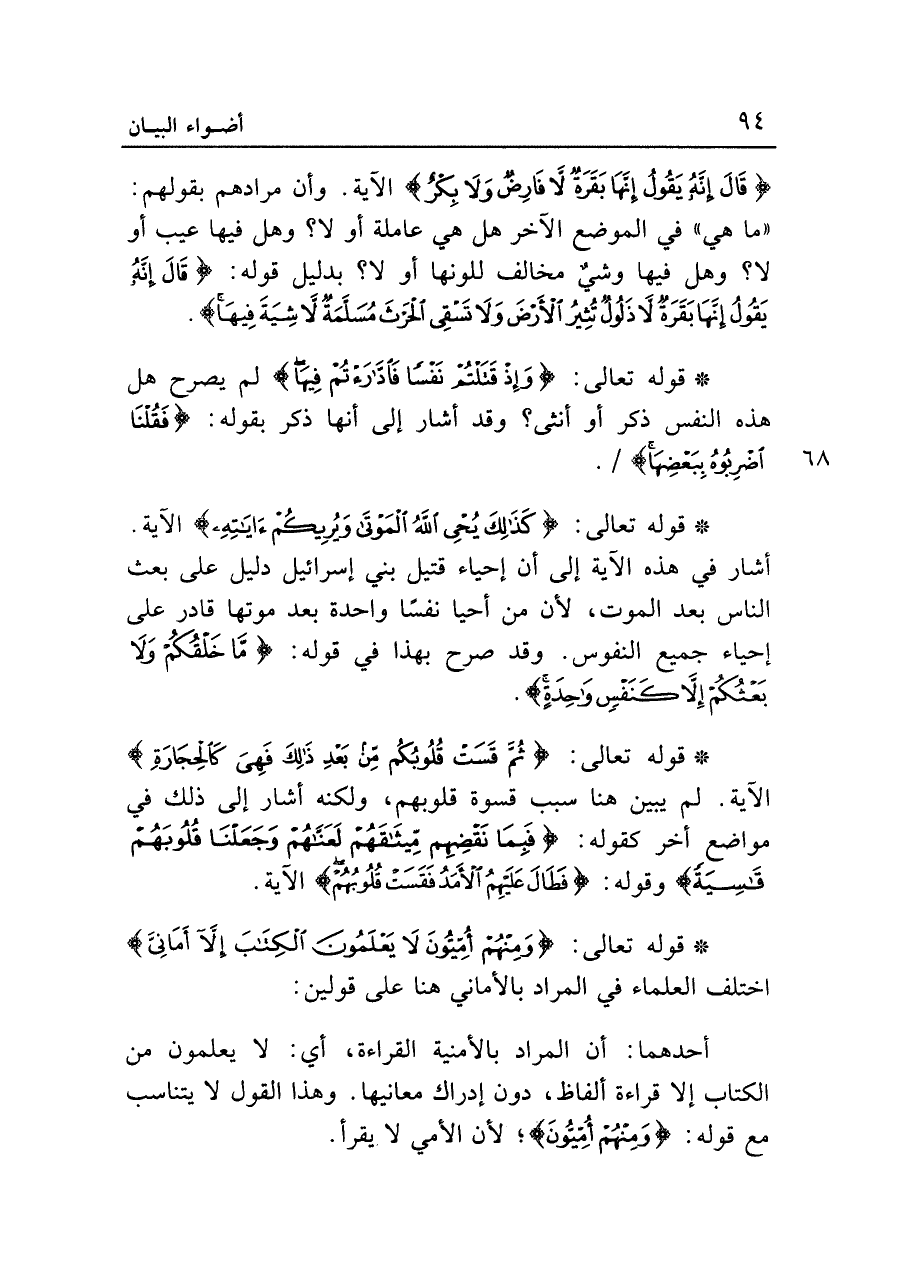 ٩٤ أضواء البيان
﴿ قَالَ إِنَّهُۥ يَقُولُ إِنَّهَا بَقَرَةٌ لَّا فَارِضٌ وَلَا بِكْرٌ ﴾ الآية. وأن مرادهم بقولهم:
«ما هي» في الموضع الآخر هل هي عاملة أو لا؟ وهل فيها عيب أو
لا؟ وهل فيها وشيٌ مخالف للونها أو لا؟ بدليل قوله: ﴿ قَالَ إِنَّهُۥ
يَقُولُ إِنَّهَا بَقَرَةٌ لَّا ذَلُولٌ تُثِيرُ ٱلْأَرْضَ وَلَا تَسْقِى ٱلْحَرْثَ مُسَلَّمَةٌ لَّا شِيَةَ فِيهَاۚ﴾.
* قوله تعالى: ﴿ وَإِذْ قَتَلْتُمْ نَفْسًا فَٱدَّٰرَءْتُمْ فِيهَاۖ ﴾ لم يصرح هل
هذه النفس ذكر أو أنثى؟ وقد أشار إلى أنها ذكر بقوله: ﴿فَقُلْنَا
ٱضْرِبُوهُ بِبَعْضِهَاۚ﴾ / . ٦٨
* قوله تعالى: ﴿ كَذَٰلِكَ يُحْىِ ٱللَّهُ ٱلْمَوْتَىٰ وَيُرِيكُمْ ءَايَٰتِهِۦ﴾ الآية.
أشار في هذه الآية إلى أن إحياء قتيل بني إسرائيل دليل على بعث
الناس بعد الموت، لأن من أحيا نفسًا واحدة بعد موتها قادر على
إحياء جميع النفوس. وقد صرح بهذا في قوله: ﴿ مَّا خَلْقُكُمْ وَلَا
بَعْثُكُمْ إِلَّا كَنَفْسٍ وَٰحِدَةٍۚ﴾.
* قوله تعالى: ﴿ ثُمَّ قَسَتْ قُلُوبُكُم مِّنۢ بَعْدِ ذَٰلِكَ فَهِىَ كَٱلْحِجَارَةِ ﴾
الآية. لم يبين هنا سبب قسوة قلوبهم، ولكنه أشار إلى ذلك في
مواضع أخر كقوله: ﴿ فَبِمَا نَقْضِهِم مِّيثَٰقَهُمْ لَعَنَّٰهُمْ وَجَعَلْنَا قُلُوبَهُمْ
قَٰسِيَةًۖ﴾ وقوله: ﴿فَطَالَ عَلَيْهِمُ ٱلْأَمَدُ فَقَسَتْ قُلُوبُهُمْۖ﴾ الآية.
* قوله تعالى: ﴿وَمِنْهُمْ أُمِّيُّونَ لَا يَعْلَمُونَ ٱلْكِتَٰبَ إِلَّآ أَمَانِىَّ﴾
اختلف العلماء في المراد بالأماني هنا على قولين:
أحدهما: أن المراد بالأمنية القراءة، أي: لا يعلمون من
الكتاب إلا قراءة ألفاظ، دون إدراك معانيها. وهذا القول لا يتناسب
مع قوله: ﴿وَمِنْهُمْ أُمِّيُّونَ﴾؛ لأن الأمي لا يقرأ.